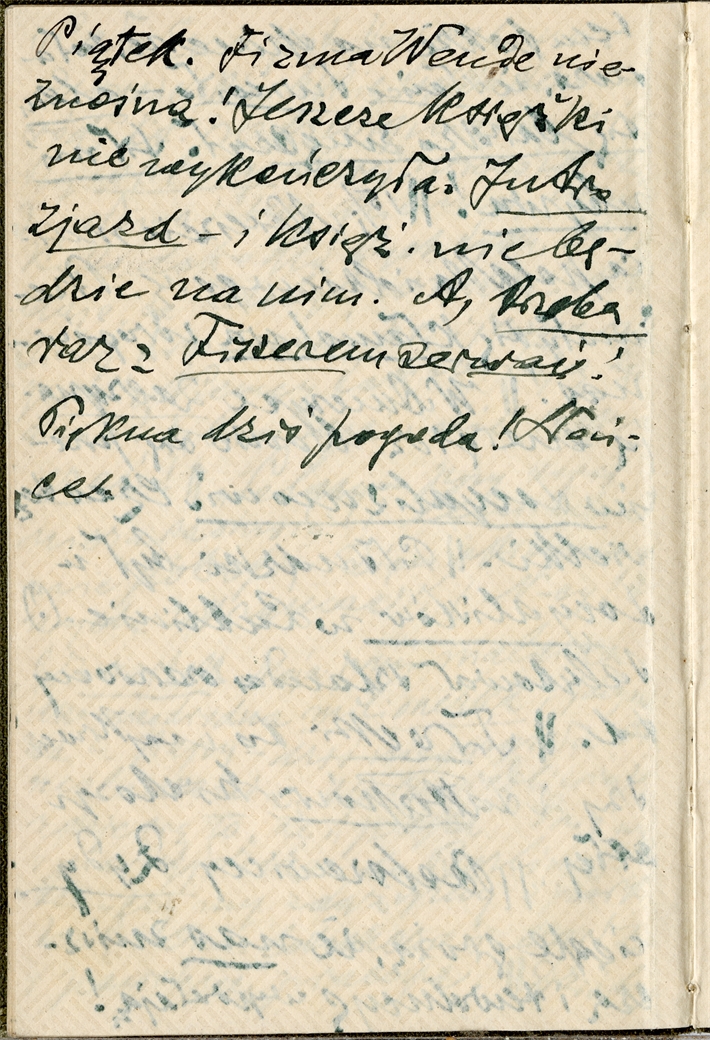 Piątek. Firma Wende nie-
znośna! Jeszcze książki
nie wykończyła. Jutro
zjazd – i książ. nie bę-
dzie na nim. A, trzeba
raz z Fiszerem zerwać!
Piękna dziś pogoda! Słoń-
ce!